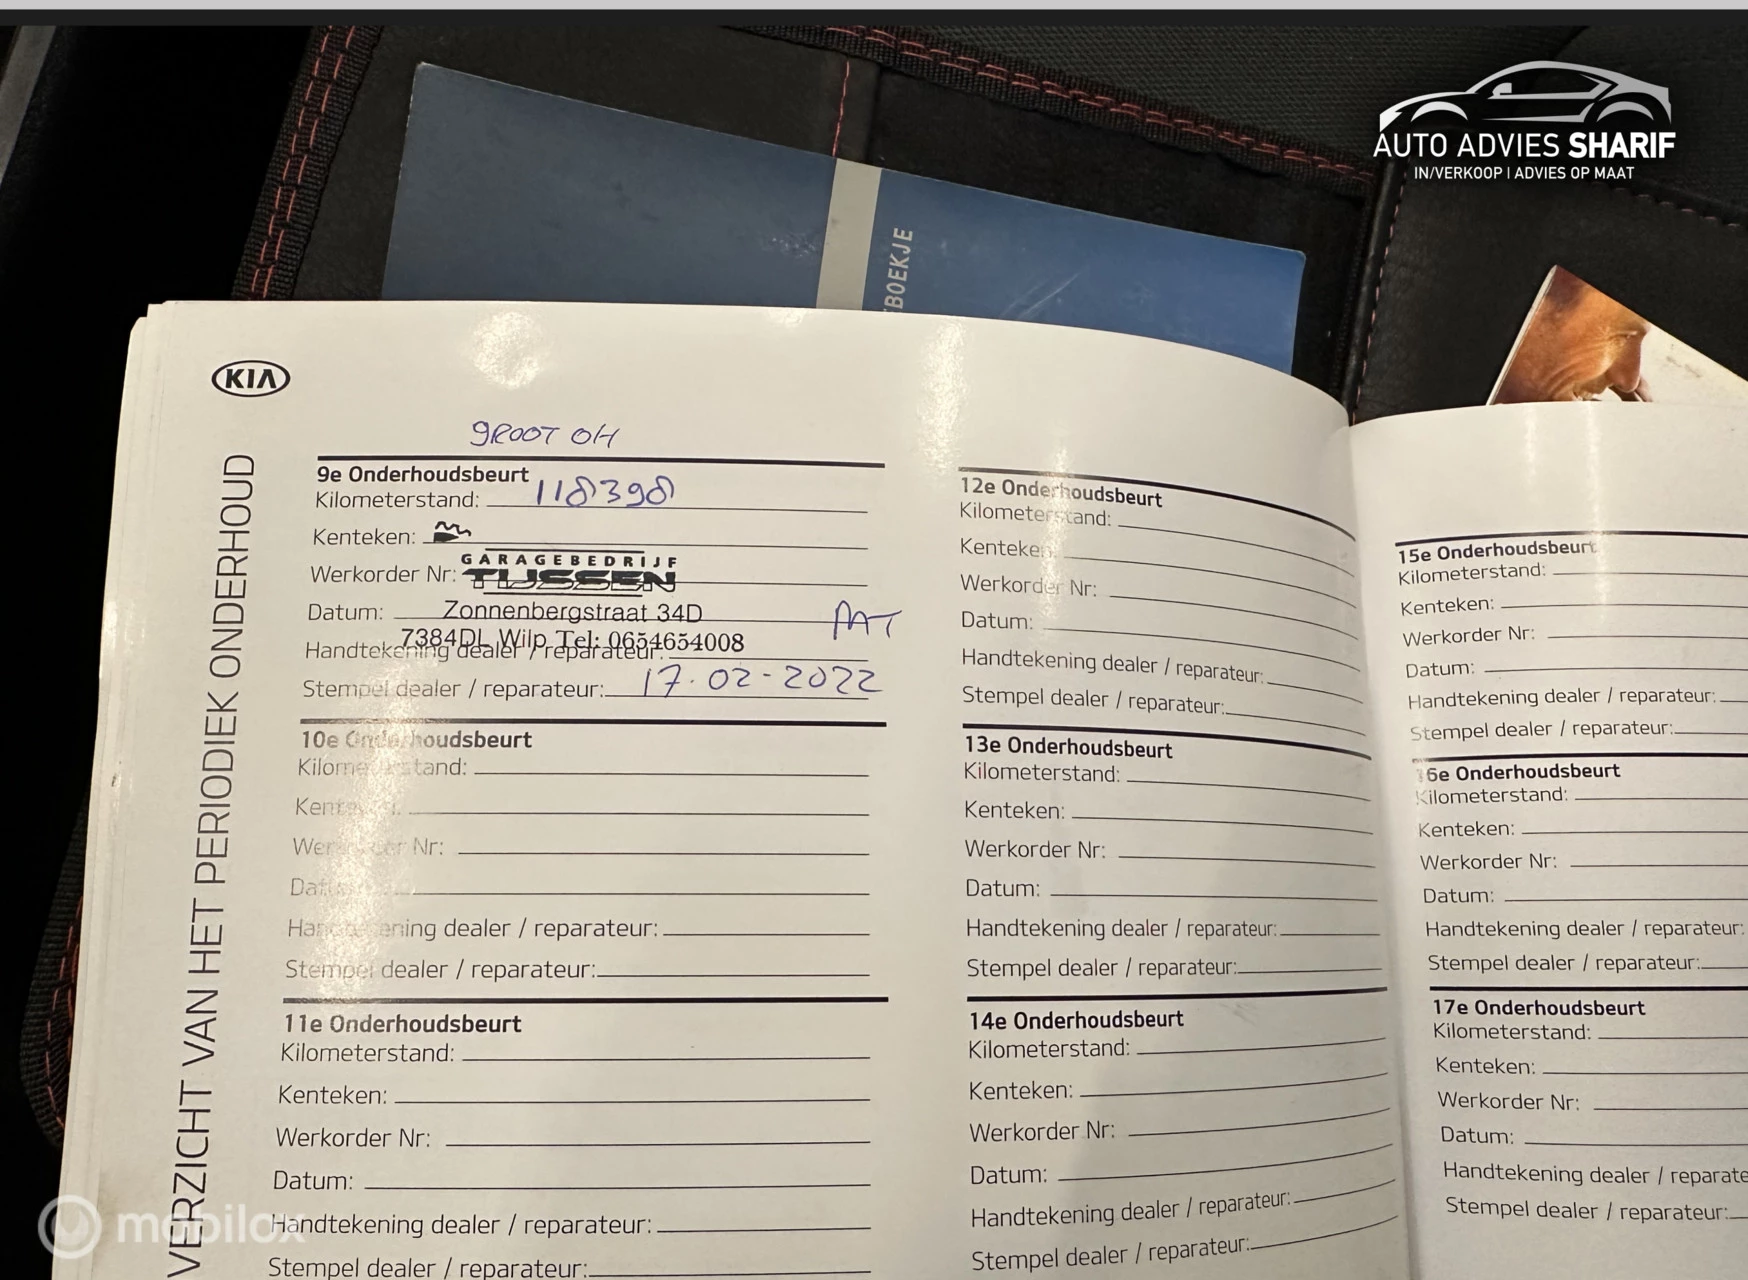 AUTO ADVIES SHARIF
IN/VERKOOP | ADVIES OP MAAT
BOEKJE
KIA
VERZICHT VAN HET PERIODIEK ONDERHOUD
GROOT OH
9e Onderhoudsbeurt
Kilometerstand: 118398
Kenteken:
GARAGEBEDRIJF
Werkorder Nr: TIJSSEN
Datum: Zonnenbergstraat 34D
7384DL Wilp Tel: 0654654008
Handtekening dealer / reparateur:
Stempel dealer / reparateur: 17-02-2022
10e Onderhoudsbeurt
Kilometerstand:
Kenteken:
Werkorder Nr:
Datum:
Handtekening dealer / reparateur:
Stempel dealer / reparateur:
11e Onderhoudsbeurt
Kilometerstand:
Kenteken:
Werkorder Nr:
Datum:
Handtekening dealer / reparateur:
Stempel dealer / reparateur:
12e Onderhoudsbeurt
Kilometerstand:
Kenteken:
Werkorder Nr:
Datum:
Handtekening dealer / reparateur:
Stempel dealer / reparateur:
13e Onderhoudsbeurt
Kilometerstand:
Kenteken:
Werkorder Nr:
Datum:
Handtekening dealer / reparateur:
Stempel dealer / reparateur:
14e Onderhoudsbeurt
Kilometerstand:
Kenteken:
Werkorder Nr:
Datum:
Handtekening dealer / reparateur:
Stempel dealer / reparateur:
15e Onderhoudsbeurt
Kilometerstand:
Kenteken:
Werkorder Nr:
Datum:
Handtekening dealer / reparateur:
Stempel dealer / reparateur:
16e Onderhoudsbeurt
Kilometerstand:
Kenteken:
Werkorder Nr:
Datum:
Handtekening dealer / reparateur:
Stempel dealer / reparateur:
17e Onderhoudsbeurt
Kilometerstand:
Kenteken:
Werkorder Nr:
Datum:
Handtekening dealer / reparate
Stempel dealer / reparateur:
mobilox